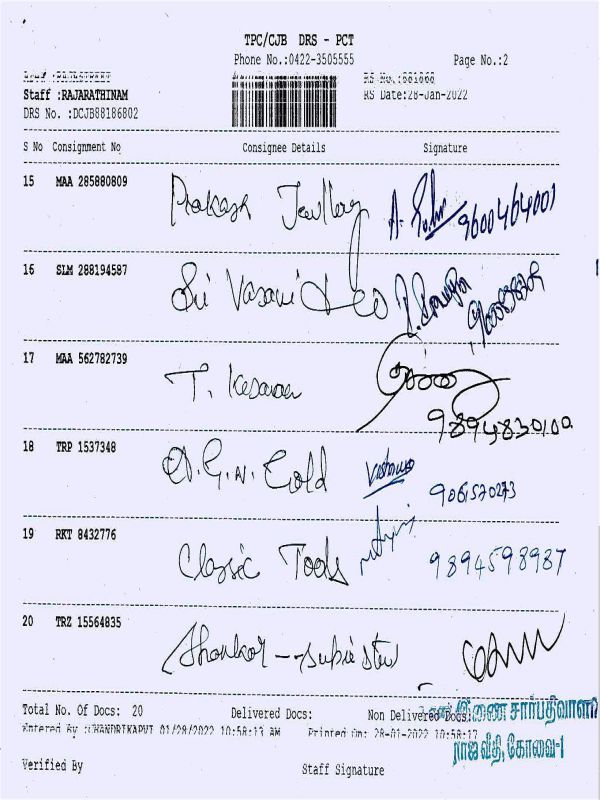 TPC/CJB DRS - PCT
Phone No.:0422-3505555 Page No.:2
RS No.:881868
Staff :RAJARATHINAM RS Date:28-Jan-2022
DRS No. :DCJB88186802
S No Consignment No Consignee Details Signature
15 MAA 285880809 Prakash 9600464001
16 SLM 288194587 Sri Vasavi & Co
17 MAA 562782739 T. Kesavan
9894830100
18 TRP 1537348 A.G.N. Gold
19 RKT 8432776 Classic Tools 9894598987
20 TRZ 15564835 Shankar
Total No. Of Docs: 20 Delivered Docs: Non Delivered Docs: இணை சார்பதிவாளர்
Entered By :CHANDRIKAPVT 01/28/2022 10:58:13 AM Printed On: 28-01-2022 10:58:17
ராஜ வீதி, கோவை-1
Verified By Staff Signature